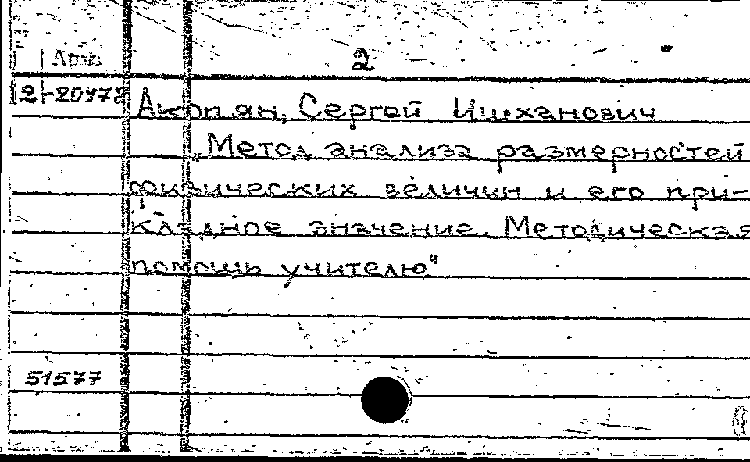 Арм 2
2-20478 Акопян, Сергей Ишханович
„Метод анализа размерностей
физических величин и его при-
кладное значение. Методическая
помощь учителю"
51577